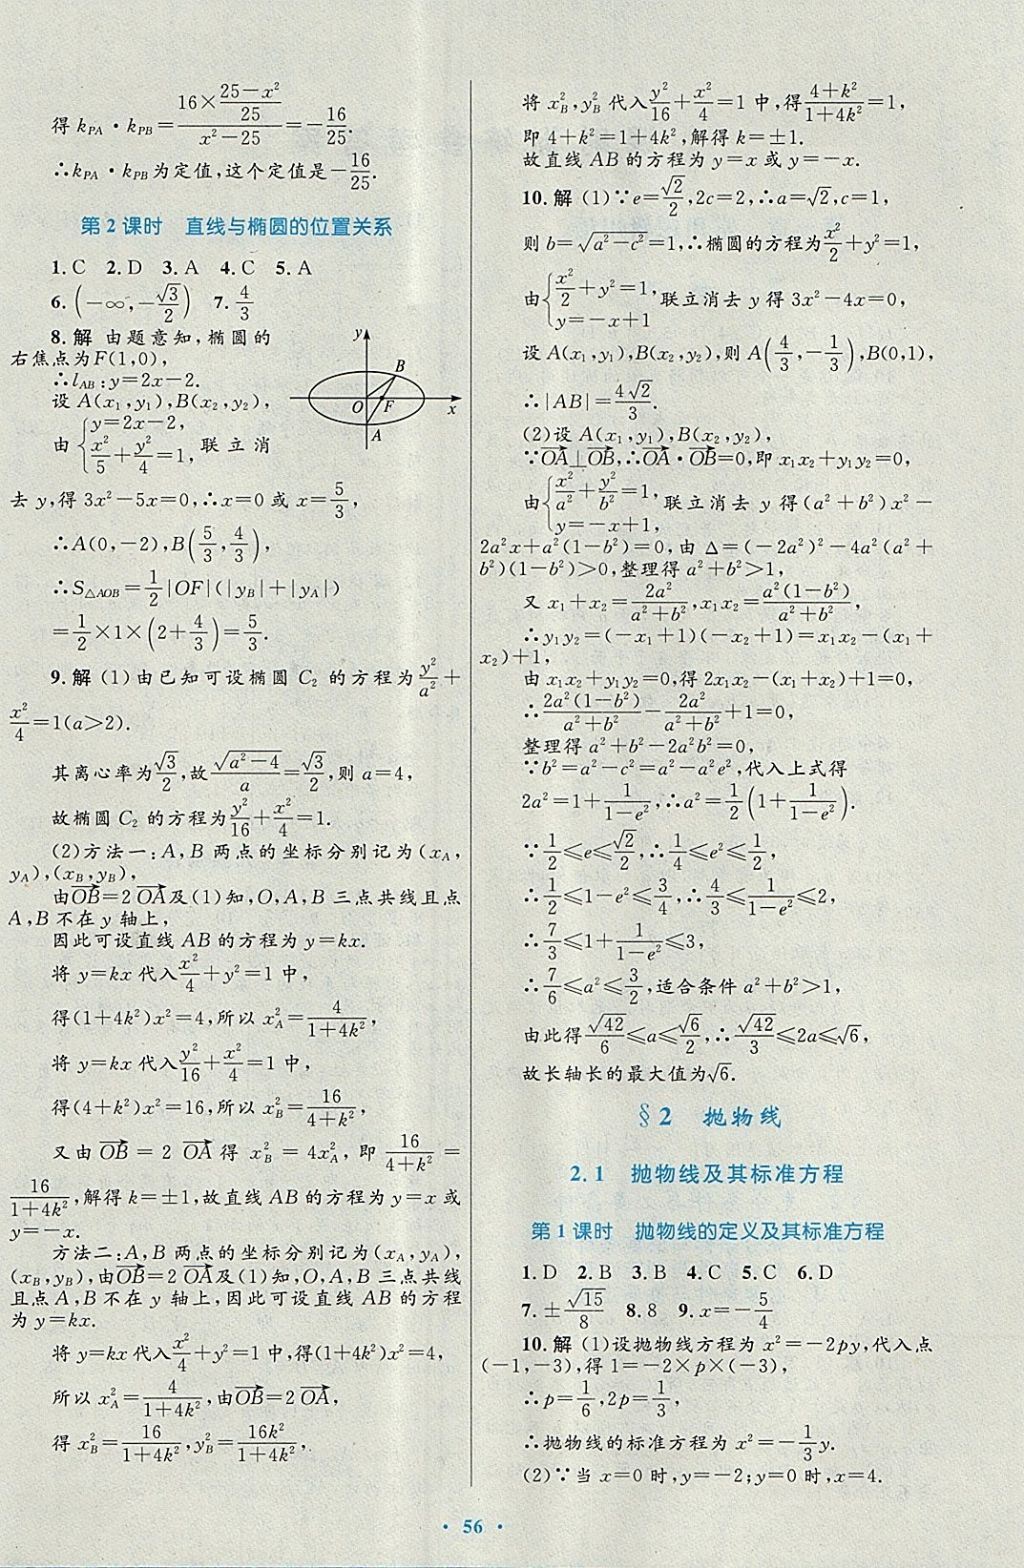 得 kPA·kPB=(16×(25−x²)/25)/(x²−25)=−16/25.
∴kPA·kPB为定值,这个定值是−16/25.
第2课时 直线与椭圆的位置关系
1.C 2.D 3.A 4.C 5.A
6.(−∞,−√3/2) 7.4/3
8.解 由题意知,椭圆的
右焦点为F(1,0),
∴lAB:y=2x−2.
设 A(x₁,y₁),B(x₂,y₂),
由{y=2x−2, x²/5+y²/4=1, 联立消
y
B
O
F
x
A
去 y,得 3x²−5x=0,∴x=0 或 x=5/3,
∴A(0,−2),B(5/3,4/3),
∴S△AOB=1/2|OF|(|yB|+|yA|)
=1/2×1×(2+4/3)=5/3.
9.解 (1)由已知可设椭圆 C₂ 的方程为y²/a²+
x²/4=1(a>2).
其离心率为√3/2,故√(a²−4)/a=√3/2,则 a=4,
故椭圆 C₂ 的方程为y²/16+x²/4=1.
(2)方法一:A,B 两点的坐标分别记为(xA,
yA),(xB,yB),
由OB→=2 OA→及(1)知,O,A,B 三点共线且点
A,B 不在 y 轴上,
因此可设直线 AB 的方程为 y=kx.
将 y=kx 代入x²/4+y²=1 中,
得(1+4k²)x²=4,所以 xA²=4/(1+4k²),
将 y=kx 代入y²/16+x²/4=1 中,
得(4+k²)x²=16,所以 xB²=16/(4+k²),
又由 OB→=2 OA→ 得 xB²=4xA²,即 16/(4+k²)=
16/(1+4k²),解得 k=±1,故直线 AB 的方程为 y=x 或
y=−x.
方法二:A,B 两点的坐标分别记为(xA,yA),
(xB,yB),由OB→=2 OA→及(1)知,O,A,B 三点共线
且点 A,B 不在 y 轴上,因此可设直线 AB 的方程
为 y=kx.
将 y=kx 代入x²/4+y²=1中,得(1+4k²)x²=4,
所以 xA²=4/(1+4k²),由OB→=2 OA→,
得 xB²=16/(1+4k²),yB²=16k²/(1+4k²),
将 xB²,yB² 代入y²/16+x²/4=1 中,得(4+k²)/(1+4k²)=1,
即 4+k²=1+4k²,解得 k=±1.
故直线 AB 的方程为 y=x 或 y=−x.
10.解 (1)∵e=√2/2,2c=2,∴a=√2,c=1,
则 b=√(a²−c²)=1,∴椭圆的方程为x²/2+y²=1,
由{x²/2+y²=1, y=−x+1 联立消去 y 得 3x²−4x=0,
设 A(x₁,y₁),B(x₂,y₂),则 A(4/3,−1/3),B(0,1),
∴|AB|=4√2/3.
(2)设 A(x₁,y₁),B(x₂,y₂),
∵OA→⊥OB→,∴OA→·OB→=0,即 x₁x₂+y₁y₂=0,
由{x²/a²+y²/b²=1, y=−x+1, 联立消去 y 得(a²+b²)x²−
2a²x+a²(1−b²)=0,由 Δ=(−2a²)²−4a²(a²+
b²)(1−b²)>0,整理得 a²+b²>1,
又 x₁+x₂=2a²/(a²+b²),x₁x₂=a²(1−b²)/(a²+b²),
∴y₁y₂=(−x₁+1)(−x₂+1)=x₁x₂−(x₁+
x₂)+1,
由 x₁x₂+y₁y₂=0,得 2x₁x₂−(x₁+x₂)+1=0,
∴2a²(1−b²)/(a²+b²)−2a²/(a²+b²)+1=0,
整理得 a²+b²−2a²b²=0,
∵b²=a²−c²=a²−a²e²,代入上式得
2a²=1+1/(1−e²),∴a²=1/2(1+1/(1−e²)).
∵1/2≤e≤√2/2,∴1/4≤e²≤1/2,
∴1/2≤1−e²≤3/4,∴4/3≤1/(1−e²)≤2,
∴7/3≤1+1/(1−e²)≤3,
∴7/6≤a²≤3/2,适合条件 a²+b²>1,
由此得√42/6≤a≤√6/2,∴√42/3≤2a≤√6,
故长轴长的最大值为√6.
§2 抛物线
2.1 抛物线及其标准方程
第1课时 抛物线的定义及其标准方程
1.D 2.B 3.B 4.C 5.C 6.D
7.±√15/8 8.8 9.x=−5/4
10.解 (1)设抛物线方程为 x²=−2py,代入点
(−1,−3),得 1=−2×p×(−3),
∴p=1/6,2p=1/3,
∴抛物线的标准方程为 x²=−1/3y.
(2)∵当 x=0 时,y=−2;y=0 时,x=4.
· 56 ·